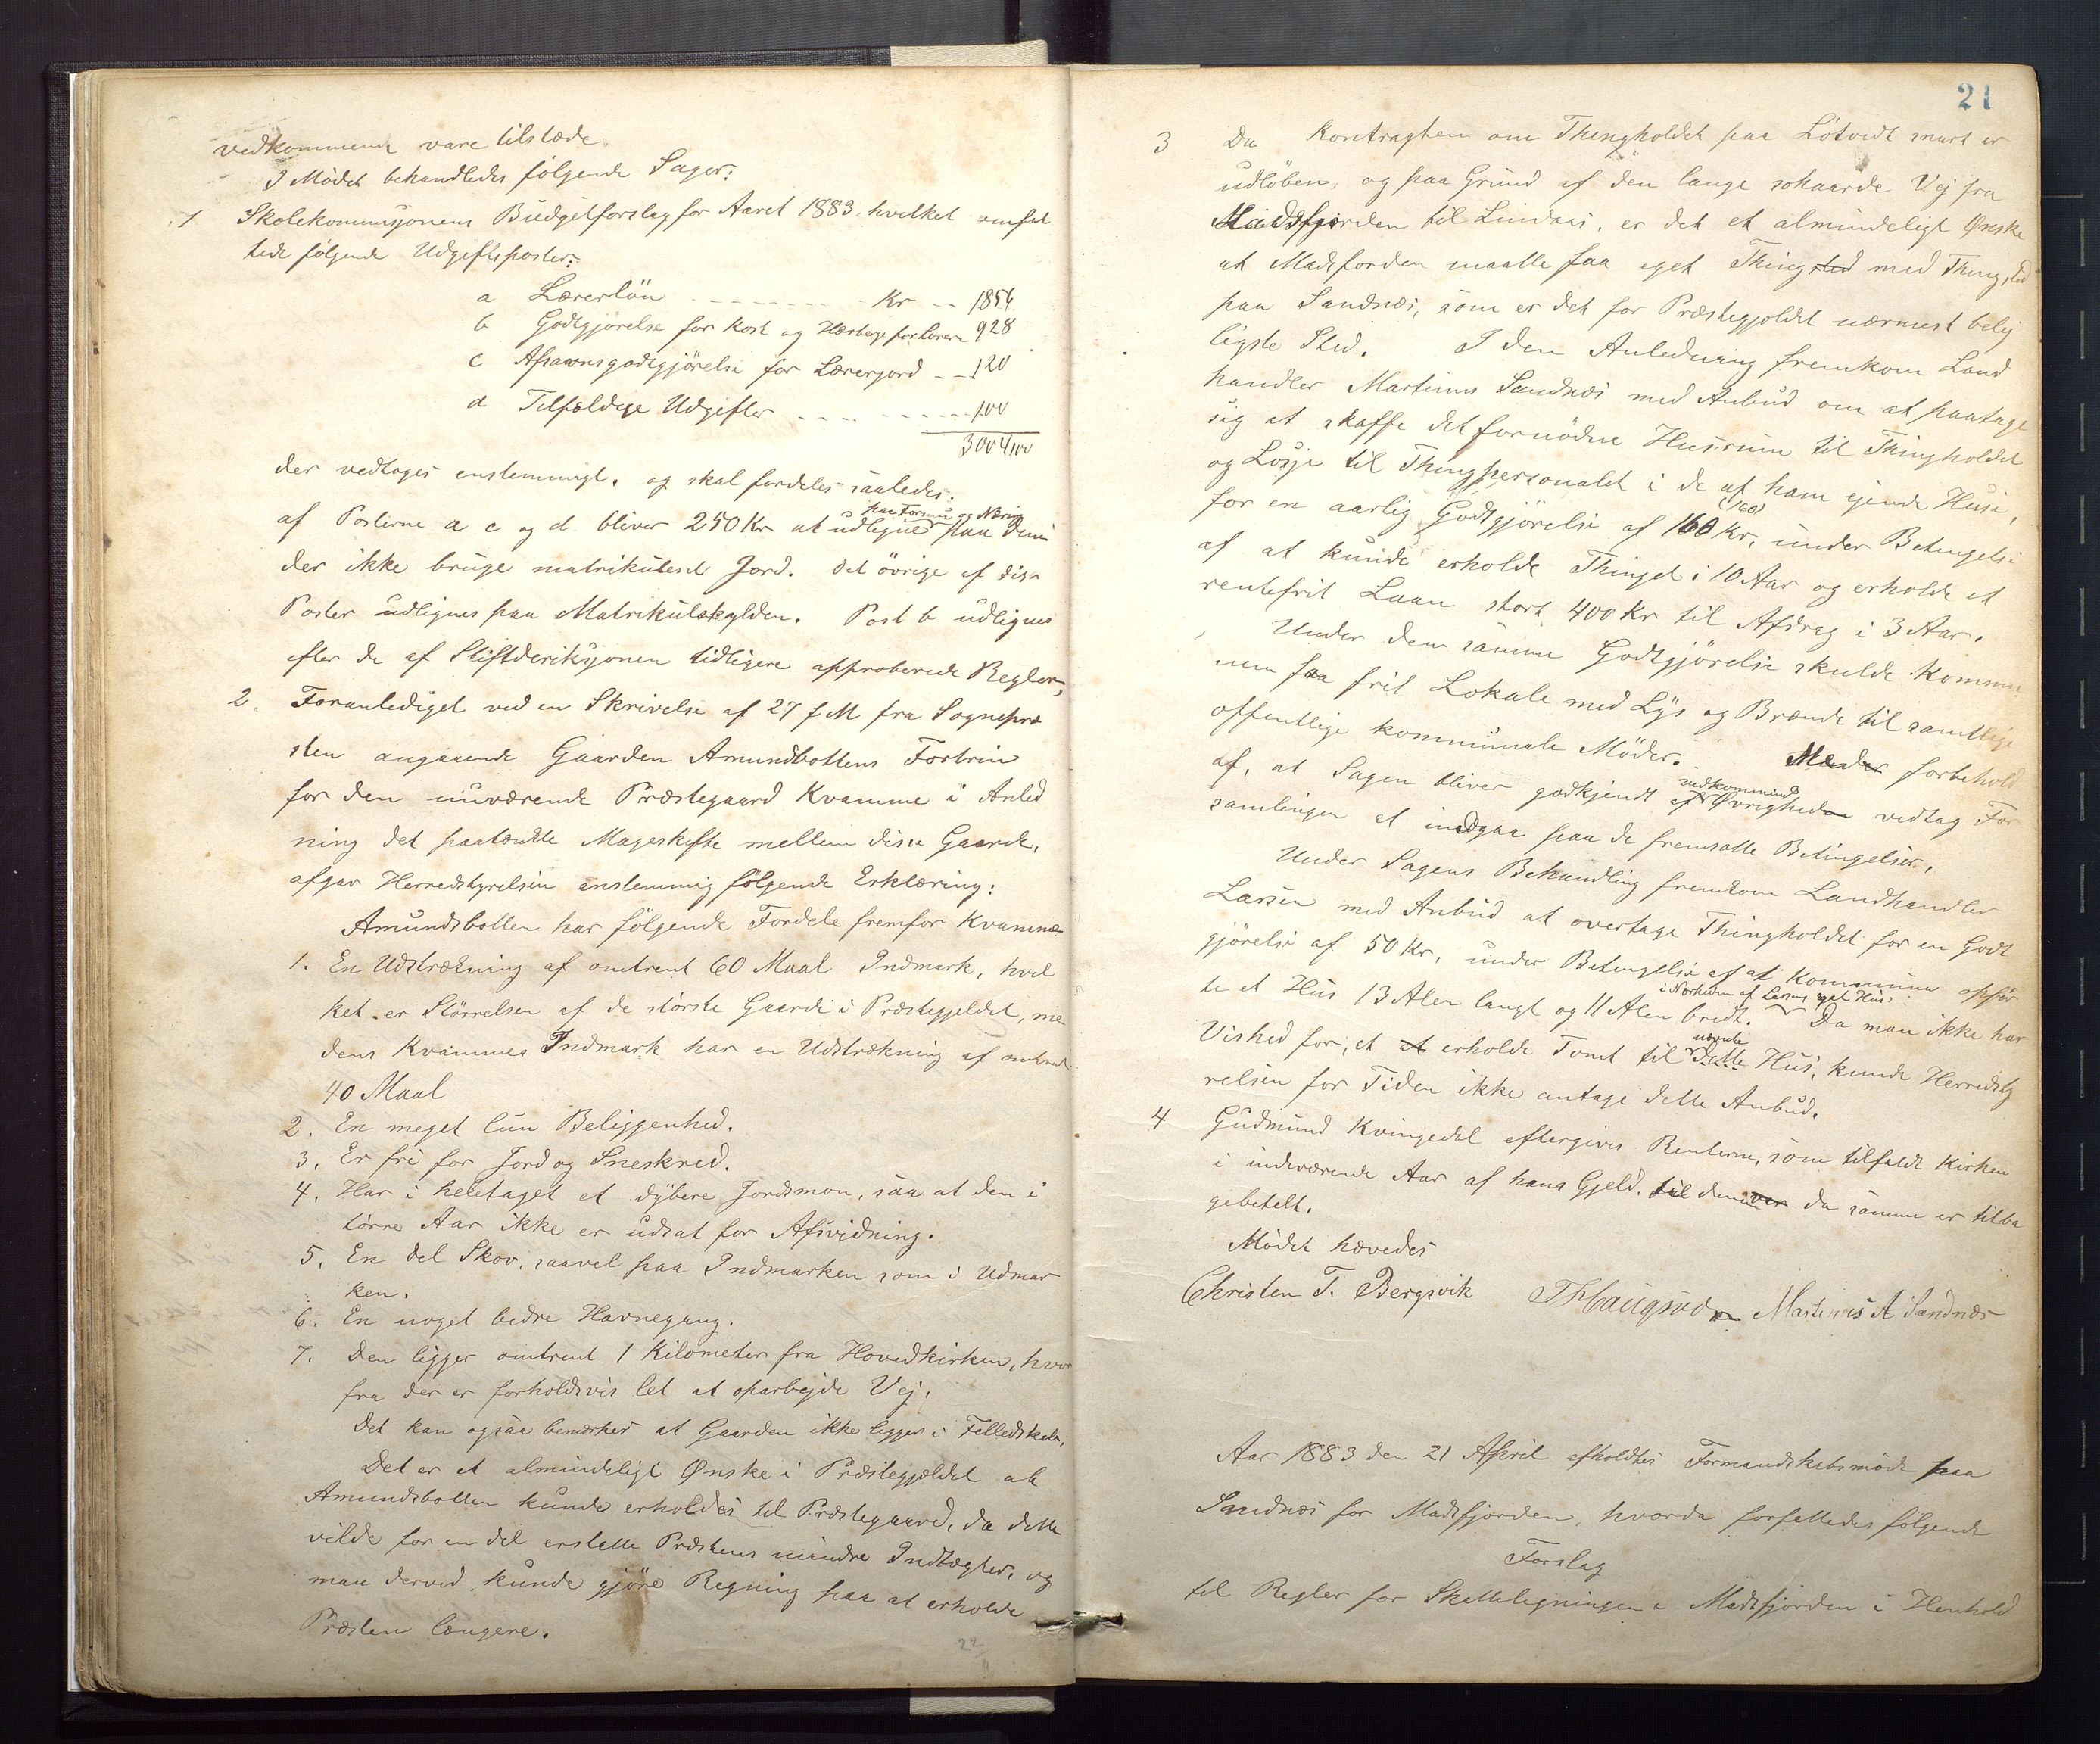 vedkommende vare tilstæde.
I Mödet behandledes følgende Sager:
1 Skolekommisjonens Büdgetforslag for Aaret 1883. hvilket omfat
tede følgende Udgiftsposter:
a Lærerlön Kr 1856
b Godtgjørelse for Kost og Herberge for Lærere 928
c Afsavnsgodtgjörelse for Lærerjord 120
d Tilfældige Udgifter 100
3004,00
der vedtoges enstemmigt. og skal fordeles saaledes:
af Posterne a c og d bliver 250 Kr at udligne paa Formue og Næring paa dem
der ikke brüge matrikuleret Jord. Det övrige af disse
Poster üdlignes paa Matrikülskylden. Post b udlignes
efter de af Stiftderiksjonen tidligere approberede Regler,
2. Foranlediget ved en Skrivelse af 27 f M fra Sognepræ
sten angaaende Gaarden Amundbottens Fortrin
for den nuværende Præstegaard Kvamme i Anled
ning det paatænkte Mageskifte mellem disse Gaarde,
afgav Herredstyrelsen enstemmig følgende Erklæring:
Amundsbotten har følgende Fordele fremfor Kvamme
1. En Udstrækning af omtrent 60 Maal Indmark, hvil
ket er Störrelsen af de störste Gaarde i Præstegjeldet, me
dens Kvammes Indmark har en Udstrækning af omtrent
40 Maal
2. En meget lün Beliggenhed.
3. Er fri for Jord og Sneskred.
4. Har i heletaget et dybere Jordsmon, saa at den i
törre Aar ikke er udsat for Afsvidning.
5. En del Skov, saavel paa Indmarken som i Udmar
ken.
6. En noget bedre Havnegang.
7. Den ligger omtrent 1 Kilometer fra Hovedkirken, hvor
fra der er forholdsvis let at oparbejde Vej.
Det kan ogsaa bemærkes at Gaarden ikke ligger i Felledskab,
Det er et almindeligt Ønske i Præstegjældet at
Amundsbotten kunde erholdes til Præstegaard, da dette
vilde for en del erstatte Præstens mindre Indtægter, og
man derved kunde gjöre Regning paa at erholde
Præsten længere.
22
21
3 Da Kontragten om Thingholdet paa Lötvedt snart er
udlöben, og paa Grund af den lange sohaarde Vej fra
Madsfjorden til Lindaas, er det et almindeligt Ønske
at Madsfjorden maatte faa eget Thingsted med Thingsted
paa Sandnæs, som er det for Præstegjeldet nærmest belej
ligste Sted. I den Anledning fremkom Land
handler Martinus Sandnæs med Anbud om at paatage
sig at skaffe det fornödne Husrum til Thingholdet
og Losje til Thingpersonalet i de af ham ejende Huse,
for en aarlig Godtgjörelse af 160 (160) Kr, ünder Betingelse
af at kunde erholde Thinget i 10 Aar og erholde et
rentefrit Laan stort 400 Kr til Afdrag i 3 Aar.
Under den samme Godtgjörelse skulde Kommu
nen faa frit Lokale med Lys og Brænde til samtlige
offentlige kommunale Möder. Meder forbehold
af, at Sagen bliver godkjendt af vedkommende Øvrigheden vedtag For
samlingen at indgaa paa de fremsatte Betingelser.
Under Sagens Behandling fremkom Landhandler
Larsen med Anbud at overtage Thingholdet for en Godt
gjörelse af 50 Kr, under Betingelse af at Kommunen opför
te et Hus 13 Alen langt og 11 Alen bredt. i Nærheden af Larsens eget Hus. Da man ikke har
Vished for, at at erholde Tomt til nævnte dette Hus, kunde Herredsty
relsen for Tiden ikke antage dette Anbud.
4 Gudmund Kvingedal eftergives Renterne, som tilfaldt Kirken
i indeværende Aar af hans Gjeld, til denne da samme er tilba
gebetalt.
Mödet hævedes
Christen T. Bergsvik T Haugsvær Martinus A Sandnæs
Aar 1883 den 21 April afholdtes Formandskabsmöde paa
Sandnæs for Madsfjorden, hvorda forfattedes følgende
Forslag
til Regler for Skatteligningen i Madsfjorden i Henhold